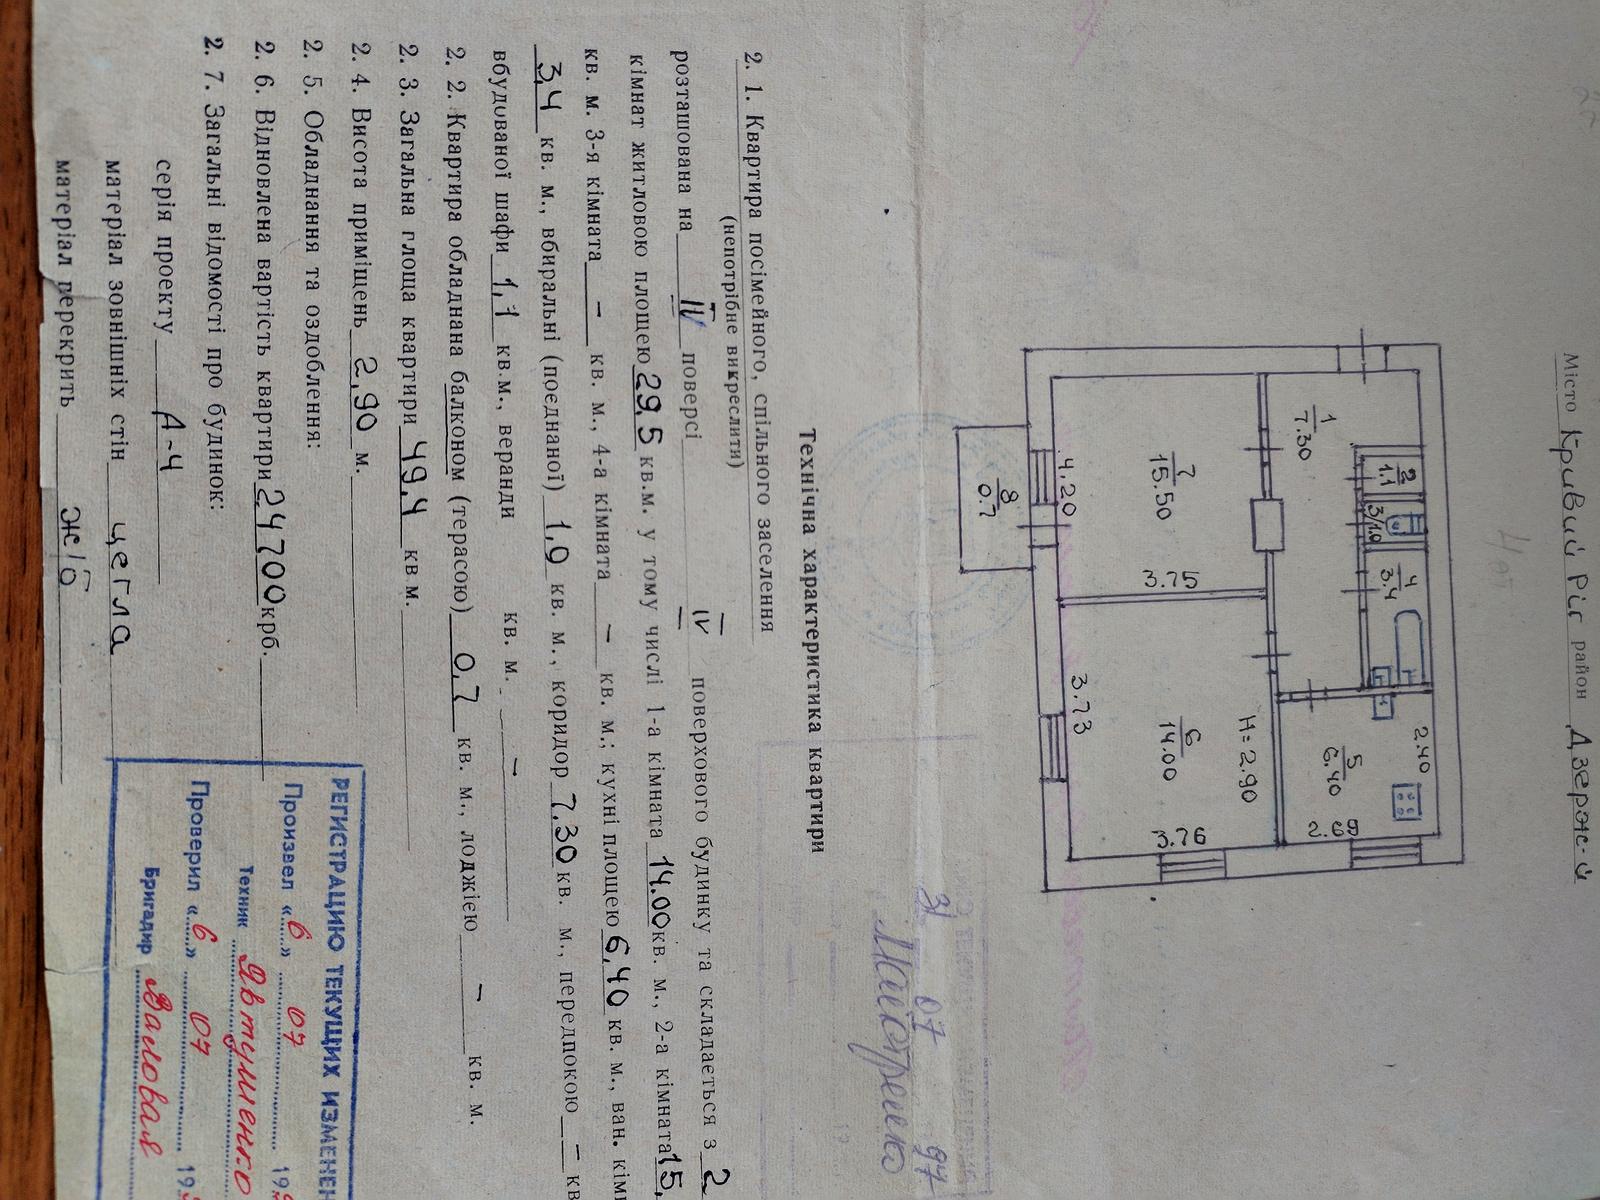 Місто Кривий Ріг район Дзерж-й
1
7.30
2
1.1
3/1.0
4
3.4
2.40
5
6.40
2.69
7
15.50
3.75
H=2.90
6
14.00
3.76
4.20
3.73
8
0.7
31 07 97
Технічна характеристика квартири
2. 1. Квартира посімейного, спільного заселення
(непотрібне викреслити)
розташована на IV поверсі IV поверхового будинку та складається з 2
кімнат житловою площею 29,5 кв.м. у тому числі 1-а кімната 14.00 кв. м., 2-а кімната 15,
кв. м. 3-я кімната – кв. м., 4-а кімната – кв. м.; кухні площею 6,40 кв. м., ван. кімн
3,4 кв. м., вбиральні (поєднаної) 1,0 кв. м., коридор 7.30 кв. м., передпокою – кв
вбудованої шафи 1,1 кв.м., веранди кв. м. –
2. 2. Квартира обладнана балконом (терасою) 0,7 кв. м., лоджією – кв. м.
2. 3. Загальна площа квартири 49,4 кв м.
2. 4. Висота приміщень 2,90 м.
2. 5. Обладнання та оздоблення:
2. 6. Відновлена вартість квартири 24700 крб.
2. 7. Загальні відомості про будинок:
серія проекту А-4
матеріал зовнішніх стін цегла
матеріал перекрить ж/б
РЕГИСТРАЦИЮ ТЕКУЩИХ ИЗМЕНЕН
Произвел «6» 07 19
Техник Явтушенко
Проверил «6» 07 19
Бригадир